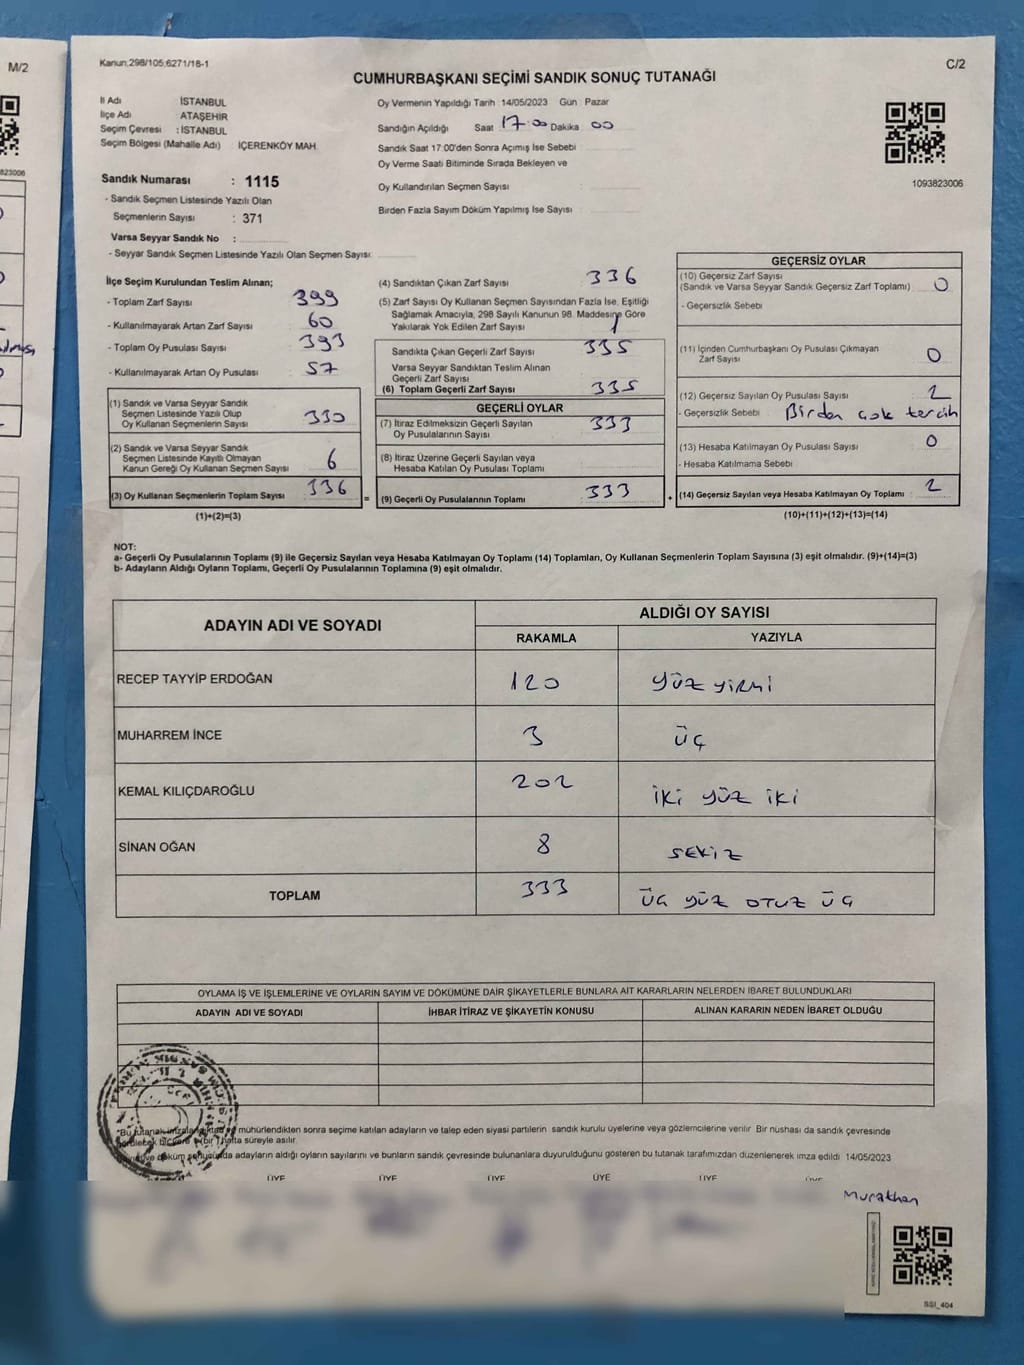 M/2
823006
Kanun;298/105;6271/18-1
C/2
CUMHURBAŞKANI SEÇİMİ SANDIK SONUÇ TUTANAĞI
İl Adı İSTANBUL
İlçe Adı ATAŞEHİR
Seçim Çevresi : İSTANBUL
Seçim Bölgesi (Mahalle Adı) İÇERENKÖY MAH.
Oy Vermenin Yapıldığı Tarih 14/05/2023 Gün Pazar
Sandığın Açıldığı Saat 17:00 Dakika 00
Sandık Saat 17:00'den Sonra Açımış İse Sebebi
Oy Verme Saati Bitiminde Sırada Bekleyen ve
Oy Kullandırılan Seçmen Sayısı :
Birden Fazla Sayım Döküm Yapılmış İse Sayısı :
1093823006
Sandık Numarası : 1115
- Sandık Seçmen Listesinde Yazılı Olan
Seçmenlerin Sayısı : 371
Varsa Seyyar Sandık No :
- Seyyar Sandık Seçmen Listesinde Yazılı Olan Seçmen Sayısı:
İlçe Seçim Kurulundan Teslim Alınan;
- Toplam Zarf Sayısı 399
- Kullanılmayarak Artan Zarf Sayısı : 60
- Toplam Oy Pusulası Sayısı : 393
- Kullanılmayarak Artan Oy Pusulası : 57
(1) Sandık ve Varsa Seyyar Sandık
Seçmen Listesinde Yazılı Olup
Oy Kullanan Seçmenlerin Sayısı : 330
(2) Sandık ve Varsa Seyyar Sandık
Seçmen Listesinde Kayıtlı Olmayan
Kanun Gereği Oy Kullanan Seçmen Sayısı : 6
(3) Oy Kullanan Seçmenlerin Toplam Sayısı : 336
(1)+(2)=(3)
=
(4) Sandıktan Çıkan Zarf Sayısı : 336
(5) Zarf Sayısı Oy Kullanan Seçmen Sayısından Fazla İse, Eşitliği
Sağlamak Amacıyla, 298 Sayılı Kanunun 98. Maddesine Göre
Yakılarak Yok Edilen Zarf Sayısı :
Sandıkta Çıkan Geçerli Zarf Sayısı : 335
Varsa Seyyar Sandıktan Teslim Alınan
Geçerli Zarf Sayısı :
(6) Toplam Geçerli Zarf Sayısı : 335
GEÇERLİ OYLAR
(7) İtiraz Edilmeksizin Geçerli Sayılan
Oy Pusulalarının Sayısı : 333
(8) İtiraz Üzerine Geçerli Sayılan veya
Hesaba Katılan Oy Pusulası Toplamı :
(9) Geçerli Oy Pusulalarının Toplamı : 333
+
GEÇERSİZ OYLAR
(10) Geçersiz Zarf Sayısı
(Sandık ve Varsa Seyyar Sandık Geçersiz Zarf Toplamı) : 0
- Geçersizlik Sebebi
(11) İçinden Cumhurbaşkanı Oy Pusulası Çıkmayan
Zarf Sayısı : 0
(12) Geçersiz Sayılan Oy Pusulası Sayısı : 2
- Geçersizlik Sebebi Birden çok tercih
(13) Hesaba Katılmayan Oy Pusulası Sayısı : 0
- Hesaba Katılmama Sebebi
(14) Geçersiz Sayılan veya Hesaba Katılmayan Oy Toplamı : 2
(10)+(11)+(12)+(13)=(14)
NOT:
a- Geçerli Oy Pusulalarının Toplamı (9) ile Geçersiz Sayılan veya Hesaba Katılmayan Oy Toplamı (14) Toplamları, Oy Kullanan Seçmenlerin Toplam Sayısına (3) eşit olmalıdır. (9)+(14)=(3)
b- Adayların Aldığı Oyların Toplamı, Geçerli Oy Pusulalarının Toplamına (9) eşit olmalıdır.
ADAYIN ADI VE SOYADI
ALDIĞI OY SAYISI
RAKAMLA YAZIYLA
RECEP TAYYİP ERDOĞAN 120 yüz yirmi
MUHARREM İNCE 3 üç
KEMAL KILIÇDAROĞLU 202 iki yüz iki
SİNAN OĞAN 8 SEKİZ
TOPLAM 333 üç yüz OTUZ üç
OYLAMA İŞ VE İŞLEMLERİNE VE OYLARIN SAYIM VE DÖKÜMÜNE DAİR ŞİKAYETLERLE BUNLARA AİT KARARLARIN NELERDEN İBARET BULUNDUKLARI
ADAYIN ADI VE SOYADI İHBAR İTİRAZ VE ŞİKAYETİN KONUSU ALINAN KARARIN NEDEN İBARET OLDUĞU
*Bu tutanak mühürlendikten sonra seçime katılan adayların ve talep eden siyasi partilerin sandık kurulu üyelerine veya gözlemcilerine verilir. Bir nüshası da sandık çevresinde
(bir) hafta süreyle asılır.
döküm adayların aldığı oyların sayılarını ve bunların sandık çevresinde bulunanlara duyurulduğunu gösteren bu tutanak tarafımızdan düzenlenerek imza edildi. 14/05/2023
ÜYE ÜYE ÜYE ÜYE ÜYE ÜYE
Murathan
SSI_404